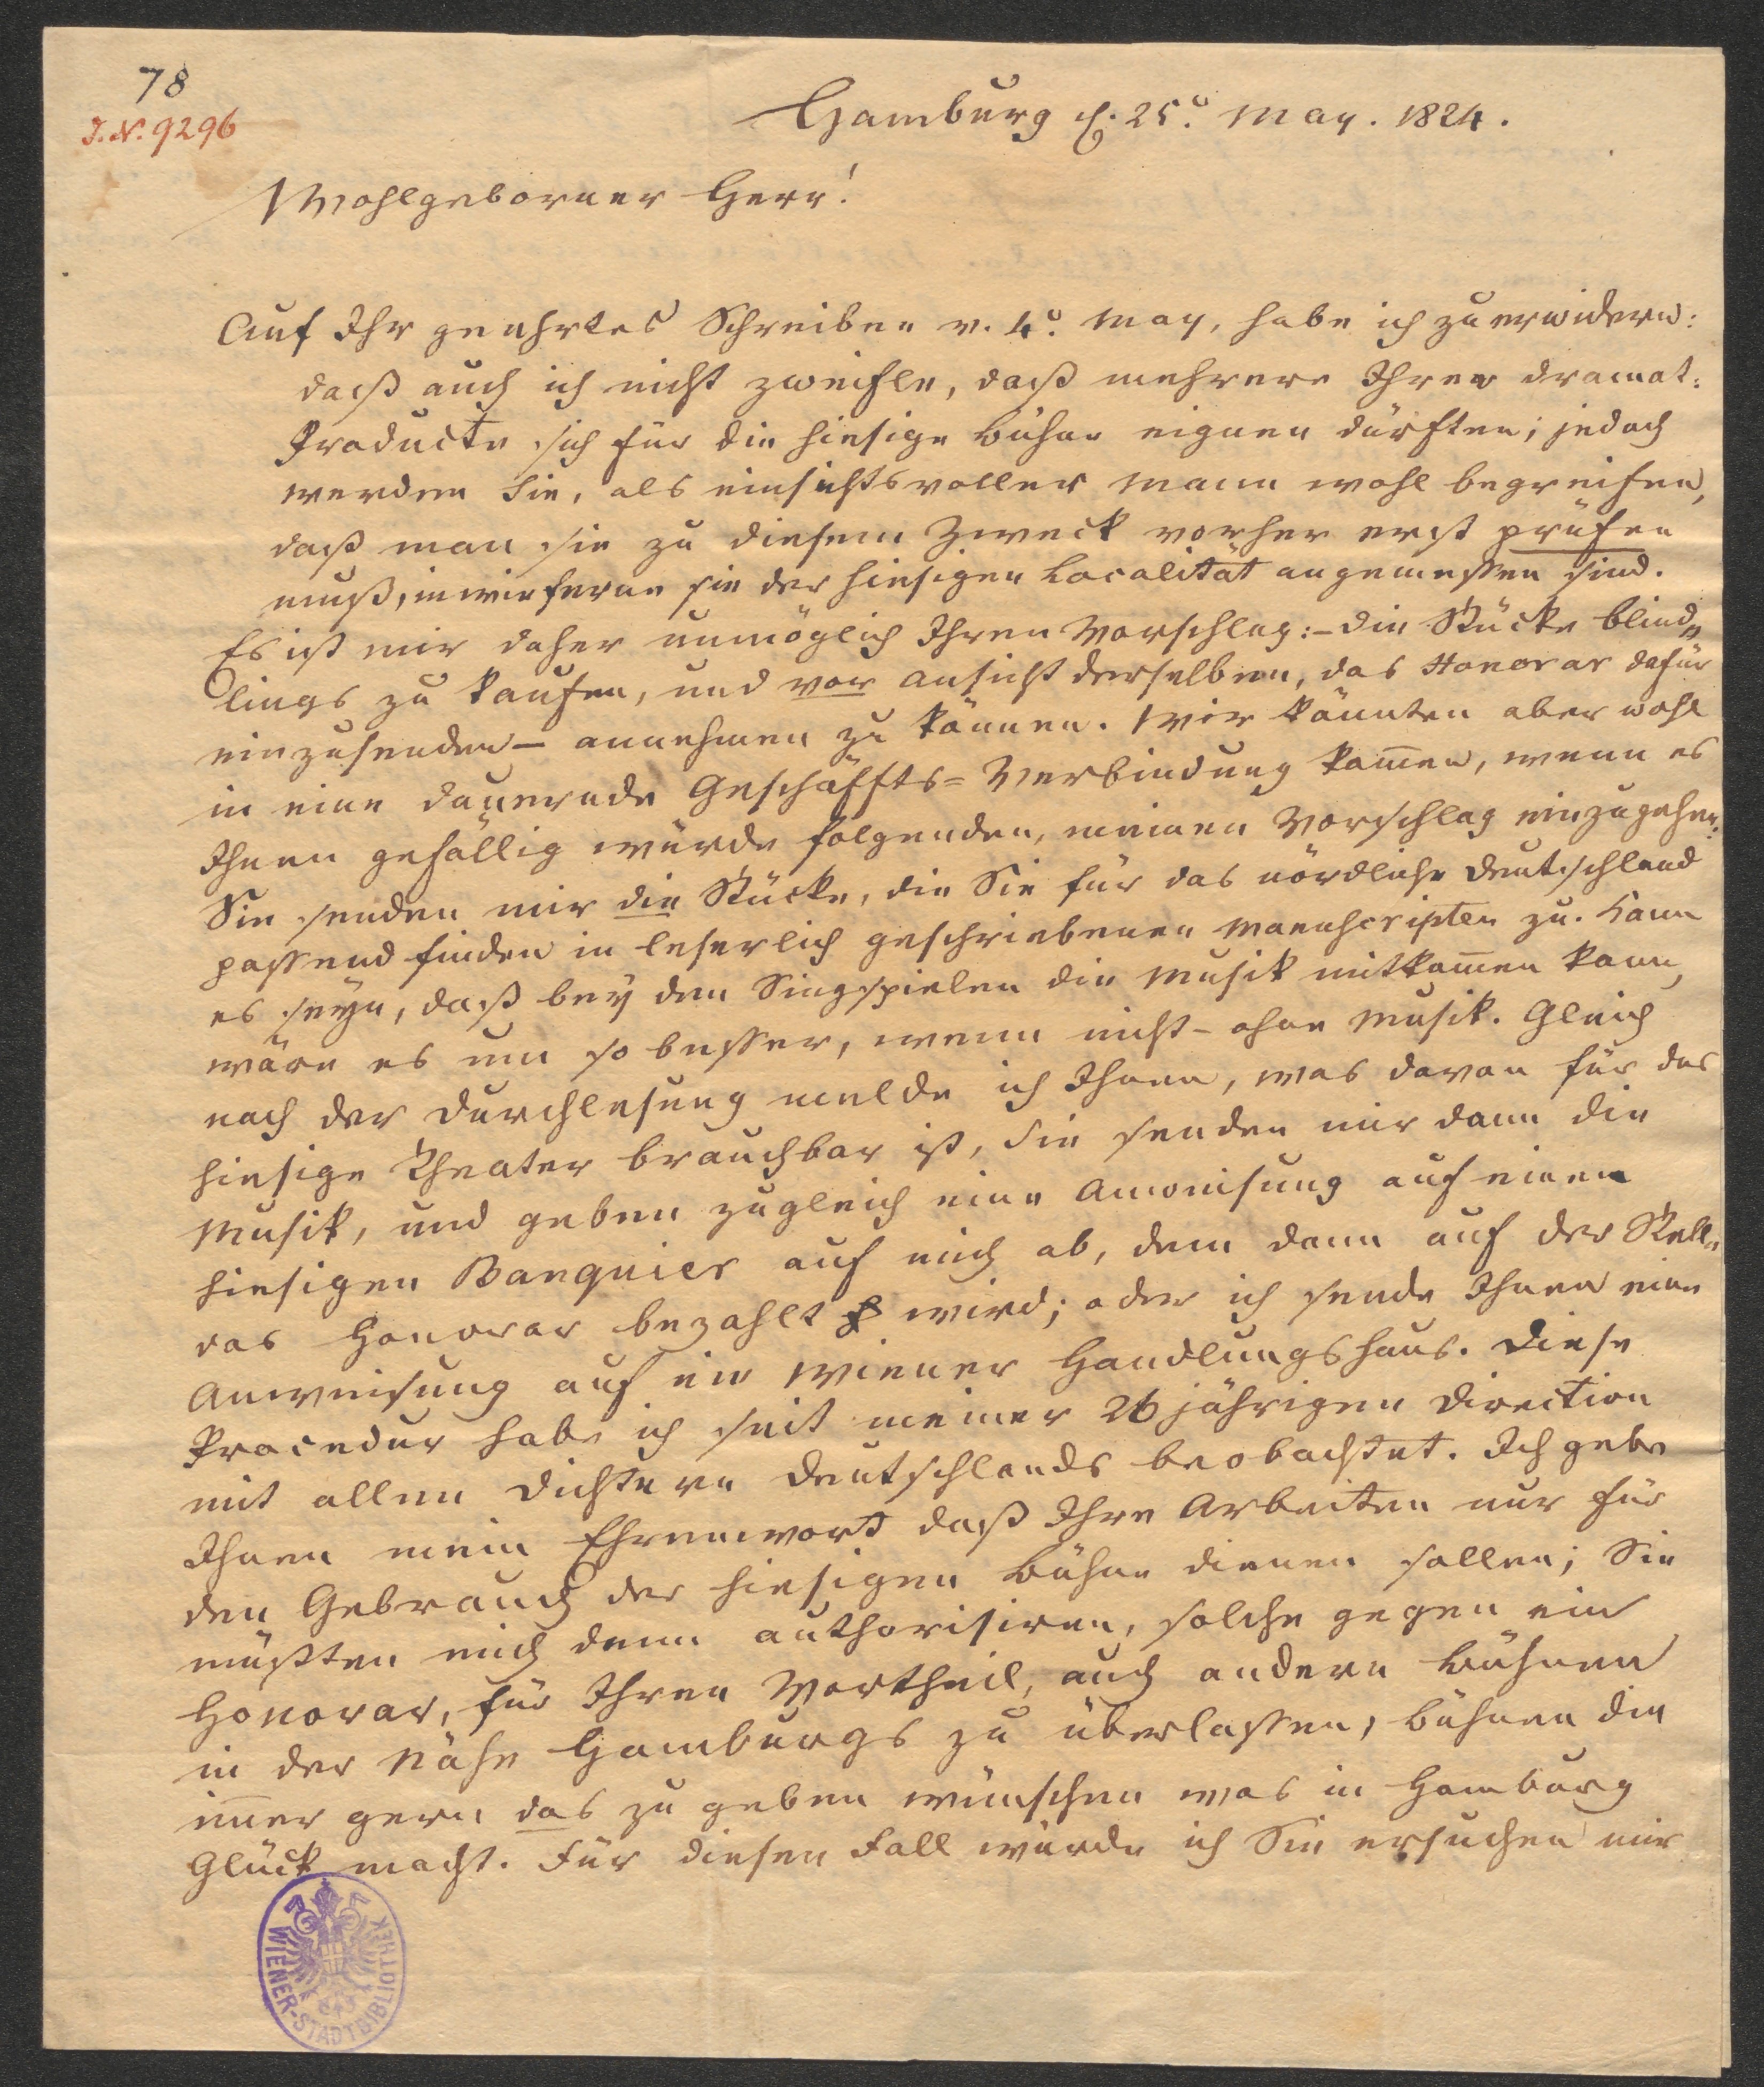 78
J. N. 9296
Hamburg d. 25.t May. 1824.
Wohlgeborner Herr!
Auf Ihr geehrtes Schreiben v. 4t. May, habe ich zu erwidern:
daß auch ich nicht zweifle, daß mehrere Ihrer dramat:
Producte sich für die hiesige Bühne eignen dürften; jedoch
werden Sie, als einsichtsvoller Mann wohl begreifen,
daß man sie zu diesem Zweck vorher erst prüfen
muß, inwieferne sie der hiesigen Localität angemessen sind.
Es ist mir daher unmöglich Ihren Vorschlag: – die Stücke blind-
lings zu kaufen, und vor Ansicht derselben, das Honorar dafür
einzusenden – annehmen zu können. Wir könnten aber wohl
in eine dauernde Geschäffts-Verbindung kom̅en, wenn es
Ihnen gefällig würde folgenden, meinen Vorschlag einzugehen:
Sie senden mir die Stücke, die Sie für das nördliche Deutschland
passend finden in leserlich geschriebenen Manuscripten zu. Kann
es seyn, daß bey den Singspielen die Musik mitkom̅en kann,
wäre es um so besser, wenn nicht – ohne Musik. Gleich
nach der Durchlesung melde ich Ihnen, was davon für das
hiesige Theater brauchbar ist, Sie senden mir dann die
Musik, und geben zugleich eine Anweisung auf einen
hiesigen Banquier auf mich ab, dem dann auf der Stelle
das Honorar bezahlt wird; oder ich sende Ihnen eine
Anweisung auf ein Wiener Handlungshaus. Diese
Procedur habe ich seit meiner 26 jährigen Direction
mit allen Dichtern Deutschlands beobachtet. Ich gebe
Ihnen mein Ehrenwort daß Ihre Arbeiten nur für
den Gebrauch der hiesigen Bühne dienen sollen; Sie
müßten mich denn authorisiren, solche gegen ein
Honorar, für Ihren Vortheil, auch andern Bühnen
in der Nähe Hamburgs zu überlassen, Bühnen die
im̅er gern das zu geben wünschen was in Hamburg
Glück macht. Für diesen Fall würde ich Sie ersuchen mir
WIENER-STADTBIBLIOTHEK